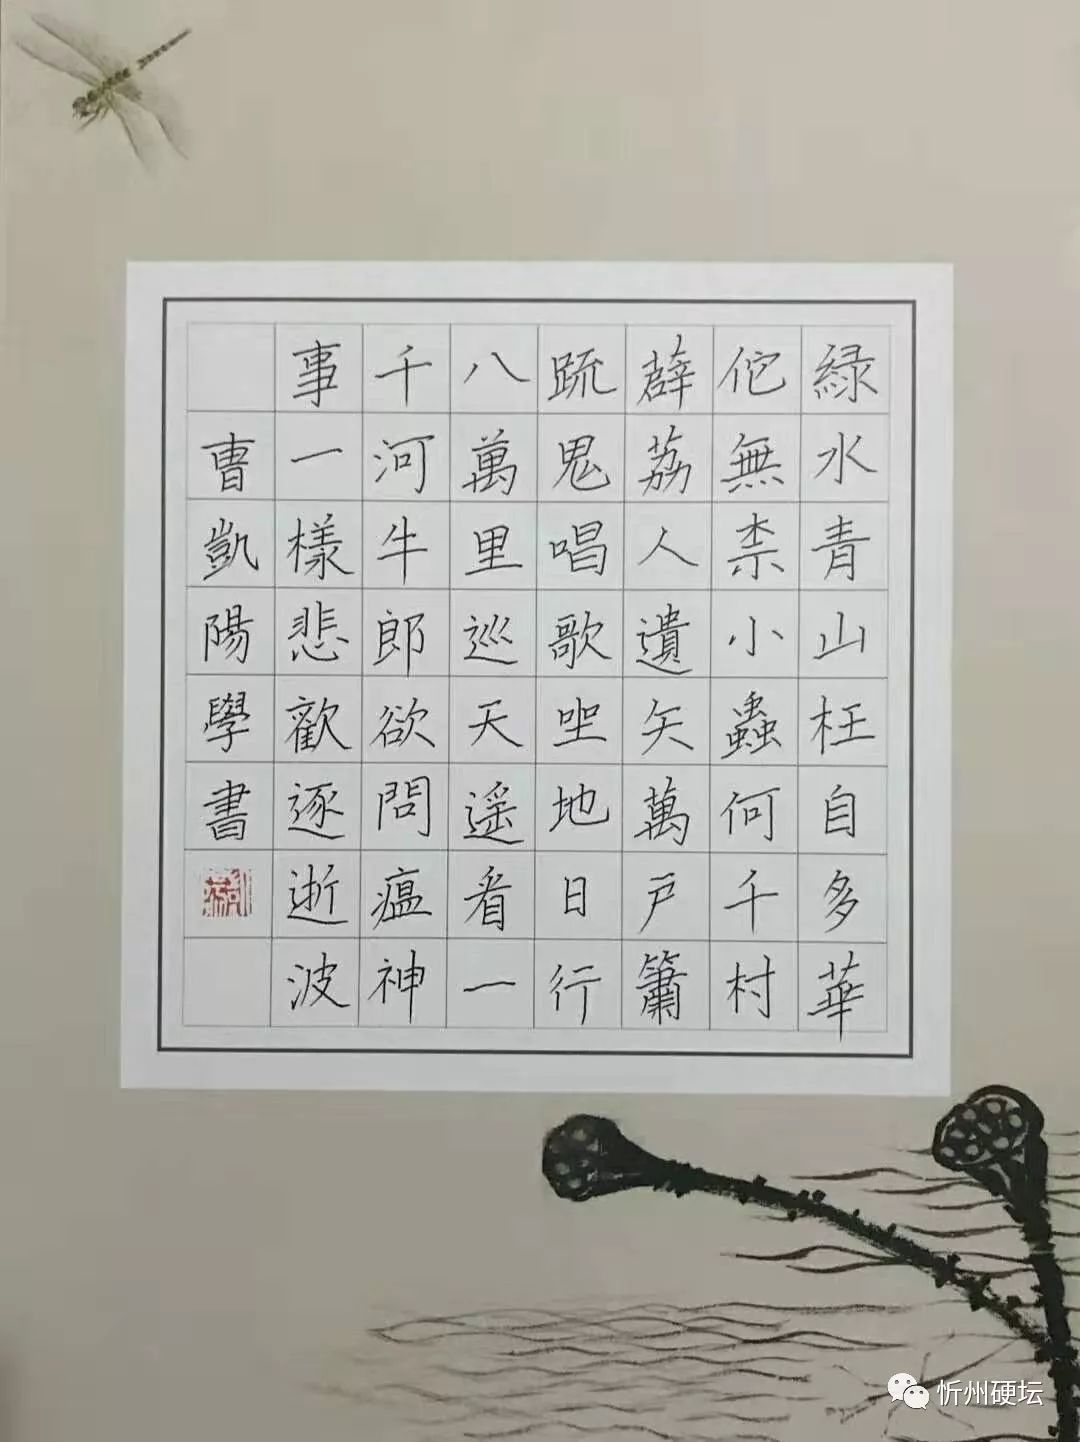 緑水青山枉自多華
佗無柰小蟲何千村
薜荔人遺矢萬戶簫
䟽鬼唱歌坐地日行
八萬里巡天遥看一
千河牛郎欲問瘟神
事一樣悲歡逐逝波
曺凱陽學書
忻州硬坛